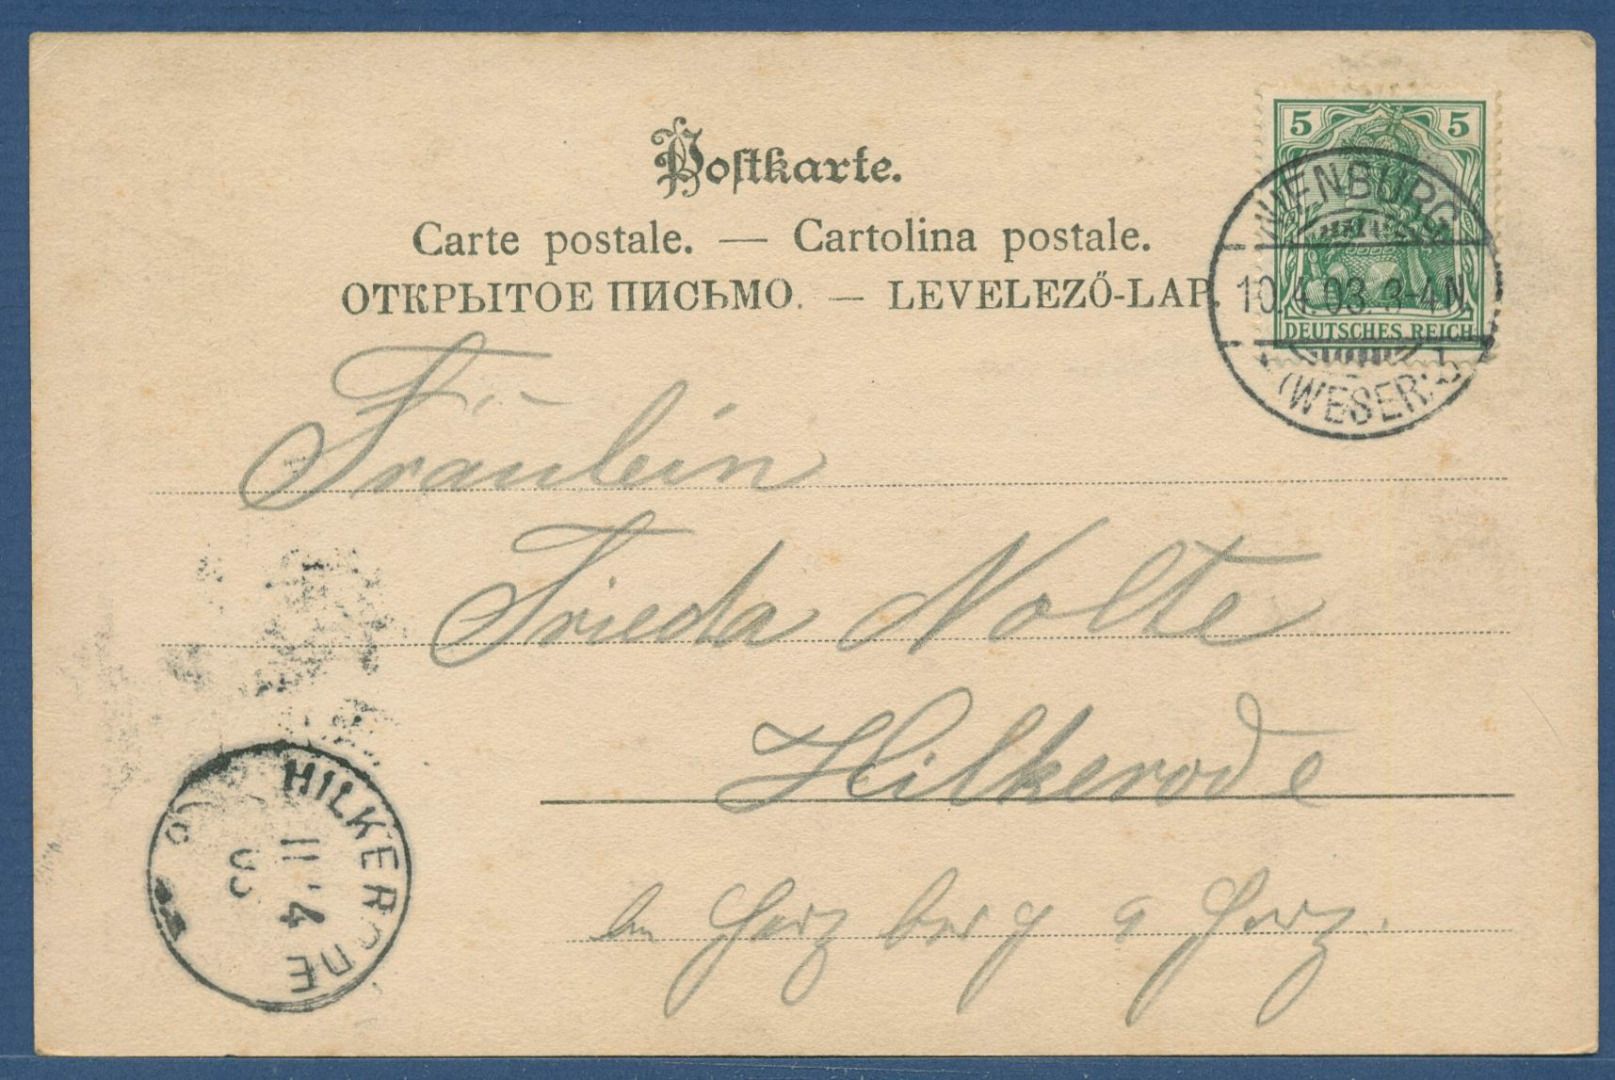 Postkarte.
Carte postale. — Cartolina postale.
ОТКРЫТОЕ ПИСЬМО. — LEVELEZŐ-LAP.
5 5
DEUTSCHES REICH
NIENBURG
10.4.03. 3-4N.
(WESER)
Fräulein
Frieda Nolte
Hilkerode
Herzberg a Harz.
HILKERODE
11.4.
03